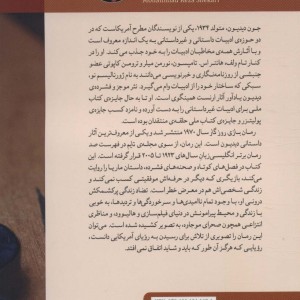 جون دیدیون، متولد ۱۹۳۴، یکی از نویسندگان مطرح آمریکاست که در
دو حوزه‌ی ادبیات داستانی و غیرداستانی به یک اندازه معروف است
و با آثارش همه‌ی مخاطبان ادبیات را به خود جذب می‌کند. او را در
کنار تام ولف، هانتر اس. تامپسون، نورمن میلر و ترومن کاپوتی عضو
جنبشی از روزنامه‌نگاری و خبرنویسی می‌دانند به نام ژورنالیسم نو،
سبکی که ساختار خود را از ادبیات وام می‌گیرد. نثر موجز و فشرده‌ی
دیدیون یادآور آثار ارنست همینگوی است. او تا به حال جایزه‌ی کتاب
ملی برای ادبیات غیرداستانی را به دست آورده و نامزد کسب جایزه‌ی
پولیتزر و جایزه‌ی کتاب ملی حلقه‌ی منتقدان بوده است.
رمان بازی روزگار سال ۱۹۷۰ منتشر شد و یکی از معروف‌ترین آثار
داستانی دیدیون است. این رمان، از سوی مجله‌ی تایم در فهرست صد
رمان برتر انگلیسی‌زبان سال‌های ۱۹۲۳ تا ۲۰۰۵ قرار گرفته است. این
کتاب، در فصل‌های کوتاه و صحنه‌های فشرده، داستان ماریا را روایت
می‌کند، بازیگری که دیگر در حرفه‌اش موفقیتی کسب نمی‌کند و
زندگی شخصی‌اش هم در معرض خطر است. تضاد زندگی پرکشمکش
درونی او، با وجود تمام ناامیدی‌ها و سرخوردگی‌ها و تردیدهایش،
با زندگی و محیط پیرامونش در دنیای فیلم‌سازی و هالیوود، و مناظری
انتزاعی همچون صحرای موهاوه، به تصویر کشیده شده است. می‌توان
این رمان را تصویری از تلاش برای رسیدن به رؤیای آمریکایی دانست،
رؤیایی که هرگز آن طور که باید و شاید اتفاق نمی‌افتد.